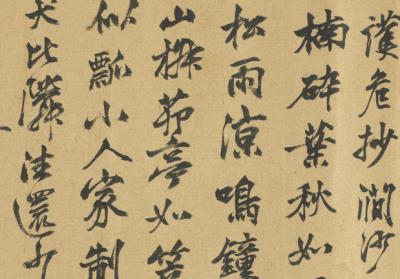 漢危抄澗沙
楠碎葉秋如
松雨涼鳴鐘
山椒茆亭如笠
似瓢小人家制
犬比鄰住還